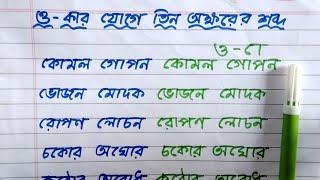 ও - কার যোগে তিন অক্ষরের শব্দ
ও - ো
কোমল গোপন কোমল গোপন
ভোজন মোদক ভোজন মোদক
রোপণ লোচন রোপণ লোচন
চকোর অঘোর চকোর অঘোর
কঠোর অবোধ কঠোর অবোধ